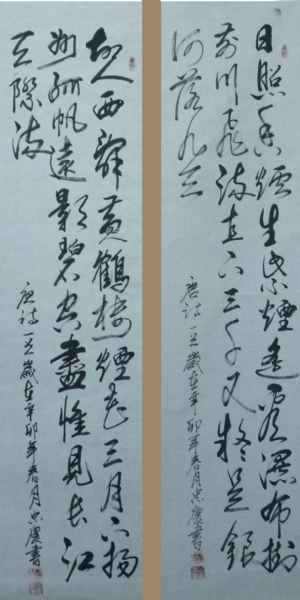 日照香炉生紫煙遥看瀑布掛
前川飛流直下三千尺疑是銀
河落九天
唐詩一首歲在辛卯年春月忠慶書
故人西辭黃鶴樓煙花三月下揚
州孤帆遠影碧空盡惟見長江
天際流
唐詩一首歲在辛卯年春月忠慶書